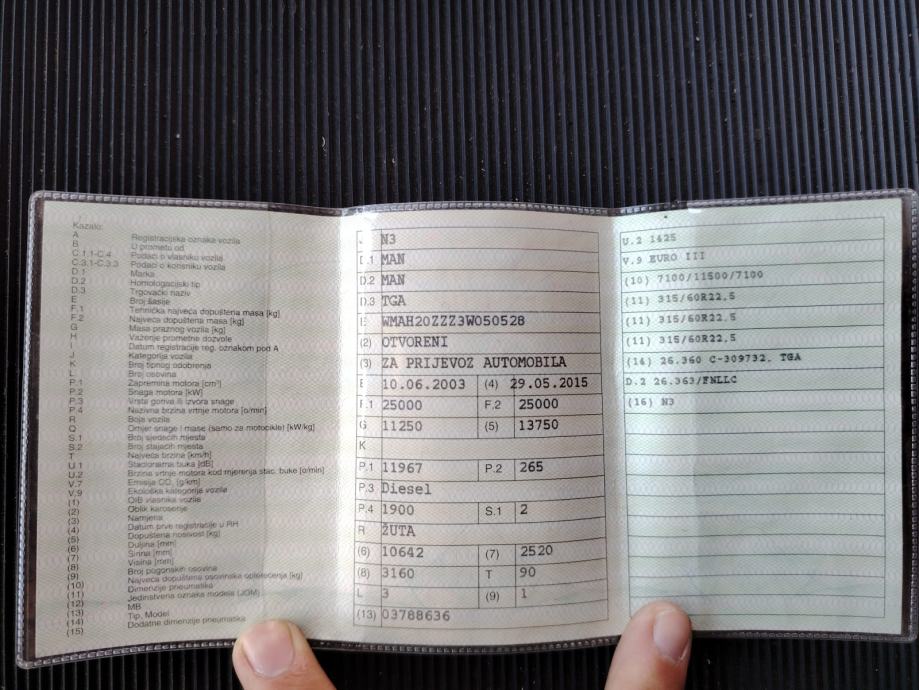 Kazalo:
A Registracijska oznaka vozila
B U prometu od
C.1.1-C.4 Podaci o vlasniku vozila
C.3.1-C.3.3 Podaci o korisniku vozila
D.1 Marka
D.2 Homologacijski tip
D.3 Trgovački naziv
E Broj šasije
F.1 Tehnička najveća dopuštena masa [kg]
F.2 Najveća dopuštena masa [kg]
G Masa praznog vozila [kg]
H Važenje prometne dozvole
I Datum registracije reg. oznakom pod A
J Kategorija vozila
K Broj tipnog odobrenja
L Broj osovina
P.1 Zapremina motora [cm³]
P.2 Snaga motora [kW]
P.3 Vrsta goriva ili izvora snage
P.4 Nazivna brzina vrtnje motora [o/min]
R Boja vozila
Q Omjer snage i mase (samo za motocikle) [kW/kg]
S.1 Broj sjedećih mjesta
S.2 Broj stajaćih mjesta
T Najveća brzina [km/h]
U.1 Stacionarna buka [dB]
U.2 Brzina vrtnje motora kod mjerenja stac. buke [o/min]
V.7 Emisija CO₂ [g/km]
V.9 Ekološka kategorija vozila
(1) OIB vlasnika vozila
(2) Oblik karoserije
(3) Namjena
(4) Datum prve registracije u RH
(5) Dopuštena nosivost [kg]
(6) Duljina [mm]
(7) Širina [mm]
(8) Visina [mm]
(9) Broj pogonskih osovina
(10) Najveća dopuštena osovinska opterećenja [kg]
(11) Dimenzije pneumatika
(12) Jedinstvena oznaka modela (JOM)
(13) MB
(14) Tip, Model
(15) Dodatne dimenzije pneumatika
J N3
D.1 MAN
D.2 MAN
D.3 TGA
E WMAH20ZZZ3W050528
(2) OTVORENI
(3) ZA PRIJEVOZ AUTOMOBILA
10.06.2003 (4) 29.05.2015
F.1 25000 F.2 25000
G 11250 (5) 13750
K
P.1 11967 P.2 265
P.3 Diesel
P.4 1900 S.1 2
R ŽUTA
(6) 10642 (7) 2520
(8) 3160 T 90
L 3 (9) 1
(13) 03788636
U.2 1425
V.9 EURO III
(10) 7100/11500/7100
(11) 315/60R22,5
(11) 315/60R22,5
(11) 315/60R22,5
(14) 26.360 C-309732, TGA
D.2 26.363/FNLLC
(16) N3